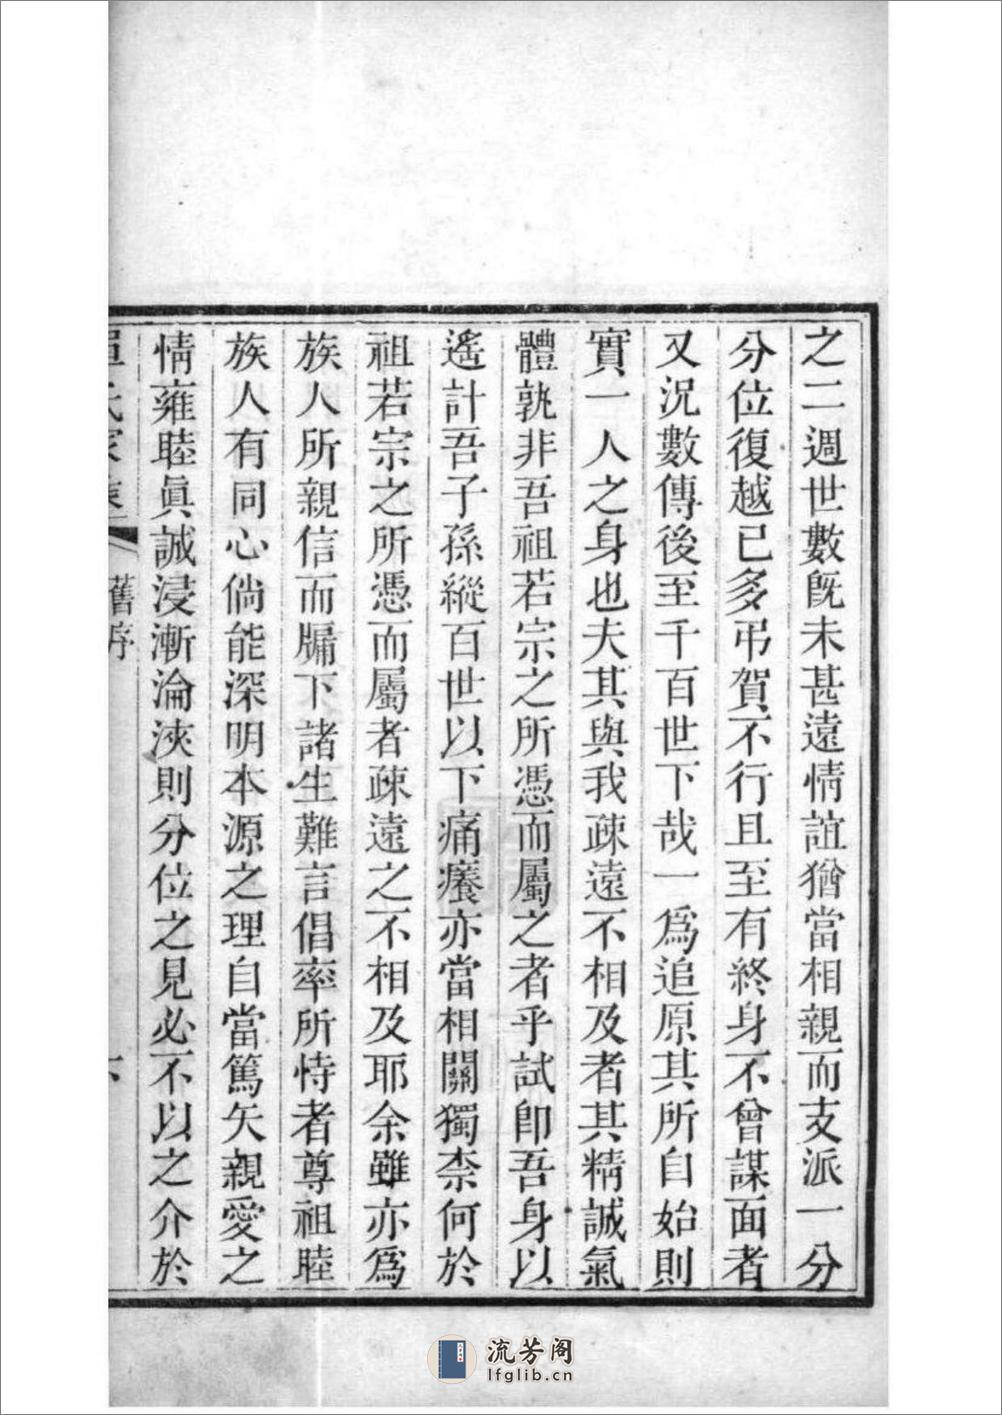 之二週世數旣未甚遠情誼猶當相親而支派一分
分位復越已多弔賀不行且至有終身不曾謀面者
又況數傳後至千百世下哉一爲追原其所自始則
實一人之身也夫其與我疎遠不相及者其精誠氣
體孰非吾祖若宗之所憑而屬之者乎試卽吾身以
遙計吾子孫縱百世以下痛癢亦當相關獨柰何於
祖若宗之所憑而屬者疎遠之不相及耶余雖亦爲
族人所親信而牖下諸生難言倡率所恃者尊祖睦
族人有同心倘能深明本源之理自當篤矢親愛之
情雍睦眞誠浸漸淪浹則分位之見必不以之介於
氏家乘
舊序
流芳阁
lfglib.cn